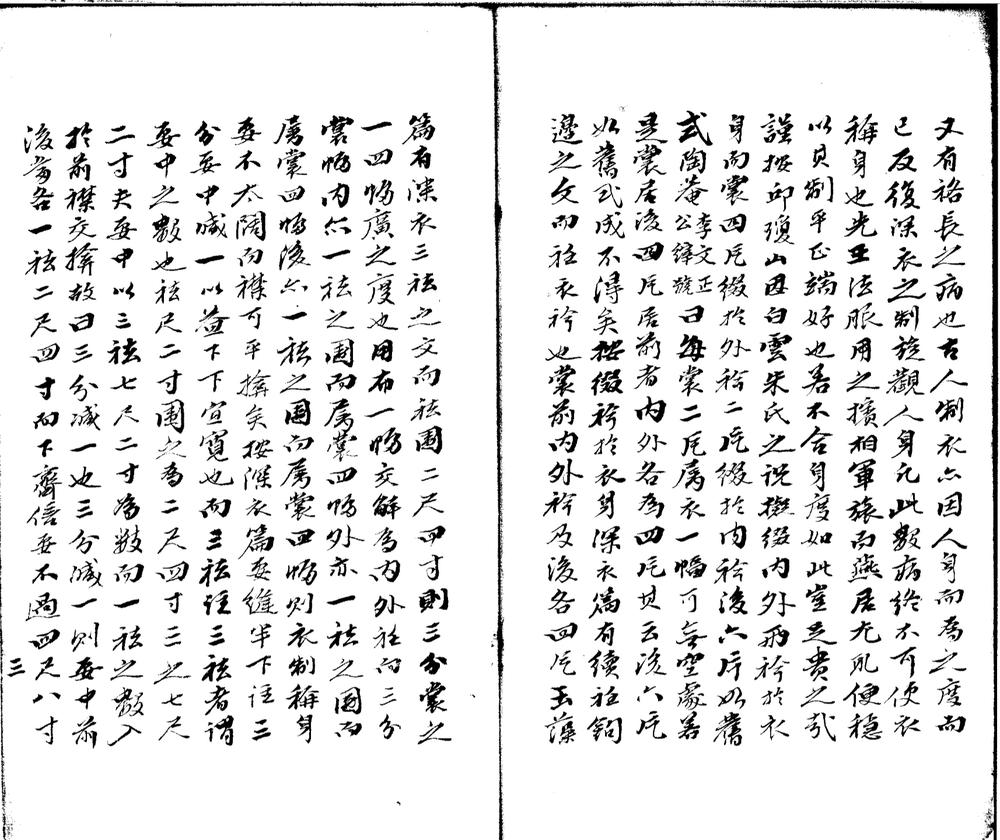 又有袼長之病也古人制衣亦因人身而為之度而
已反復深衣之制旋觀人身凡此數病終不可使衣
稱身也先王法服用之擯相軍旅而燕居尤肌便穩
以貝制平正端好也若不合身度如此豈足貴之哉
謹按邱瓊山因白雲朱氏之說撰綴內外兩衿於衣
身而裳四片綴於外衿二片綴於內衿後六片如舊
式陶菴李文正公縡號曰每裳二片屬衣一幅可無空處若
是裳居後四片居前者內外各為四片其云後六片
如舊式成不得矣按綴衿於衣身深衣篇有續衽鉤
邊之文而衽衣衿也裳前內外衿及後各四片玉藻
篇有深衣三袪之文而袪圍二尺四寸則三分裳之
一四幅廣之度也用布一幅交解為內外衽向三分
裳幅內亦一袪之圍而屬裳四幅外亦一袪之圍而
屬裳四幅後亦一袪之圍而屬裳四幅則衣制稱身
要不太闊而襟可平擠矣按深衣篇要縫半下註三
分要中減一以益下下宜寬也而三袪註三袪者謂
要中之數也袪尺二寸圍之為二尺四寸三之七尺
二寸夫要中以三袪七尺二寸為數而一袪之數入
於前襟交擠故曰三分減一也三分減一則要中前
後當各一袪二尺四寸而下齊倍要不過四尺八寸
三